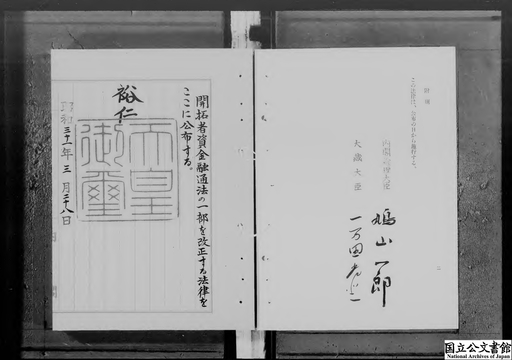 附則
この法律は、公布の日から施行する。
内閣総理大臣
鳩山一郎
大蔵大臣
一万田尚登
開拓者資金融通法の一部を改正する法律を
ここに公布する。
裕仁
天皇
御璽
昭和三十一年三月二十八日
国立公文書館
National Archives of Japan